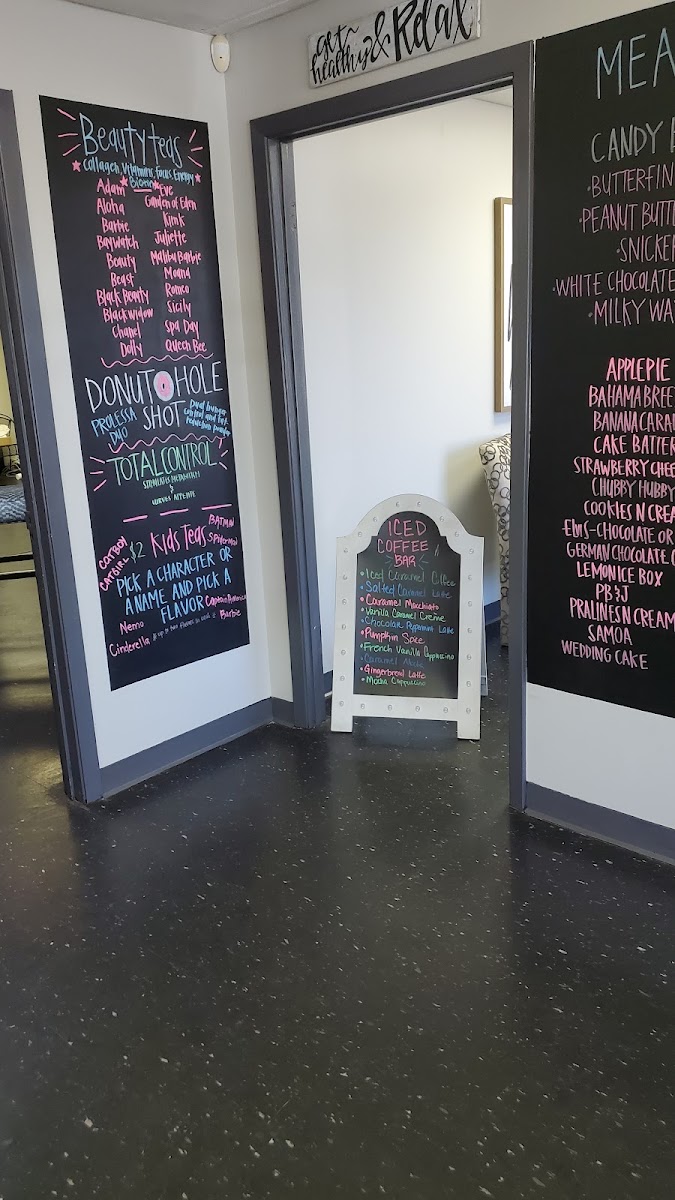 get healthy & Relax
Beauty teas
Collagen, Vitamins, Focus, Energy
Biotin
Adam
Aloha
Barbie
Baywatch
Beauty
Beast
Black Beauty
Black widow
Chanel
Dolly
Eve
Garden of Eden
Kink
Juliette
Malibu Barbie
Moana
Romeo
Sicily
Spa Day
Queen Bee
DONUT HOLE
SHOT
PROLESSA
DUO
Dual hunger
control and fat
reduction powder
TOTAL CONTROL
$2 Kids Teas
BATMAN
Spiderman
CATBOY
CATGIRL
PICK A CHARACTER OR
A NAME AND PICK A
FLAVOR
Captain America
Nemo
Barbie
Cinderella
ICED
COFFEE
BAR
Iced Caramel Coffee
Salted Caramel Latte
Caramel Macchiato
Vanilla Caramel Creme
Chocolate Peppermint Latte
Pumpkin Spice
French Vanilla Cappuccino
Caramel
Gingerbread Latte
Mocha Cappuccino
MEA
CANDY
BUTTERFIN
PEANUT BUTT
SNICKE
WHITE CHOCOLATE
MILKY WA
APPLE PIE
BAHAMA BREE
BANANA CARA
CAKE BATTER
STRAWBERRY CHEE
CHUBBY HUBBY
COOKIES N CREA
ELVIS-CHOCOLATE OR
GERMAN CHOCOLATE C
LEMON ICE BOX
PB&J
PRALINES N CREAM
SAMOA
WEDDING CAKE